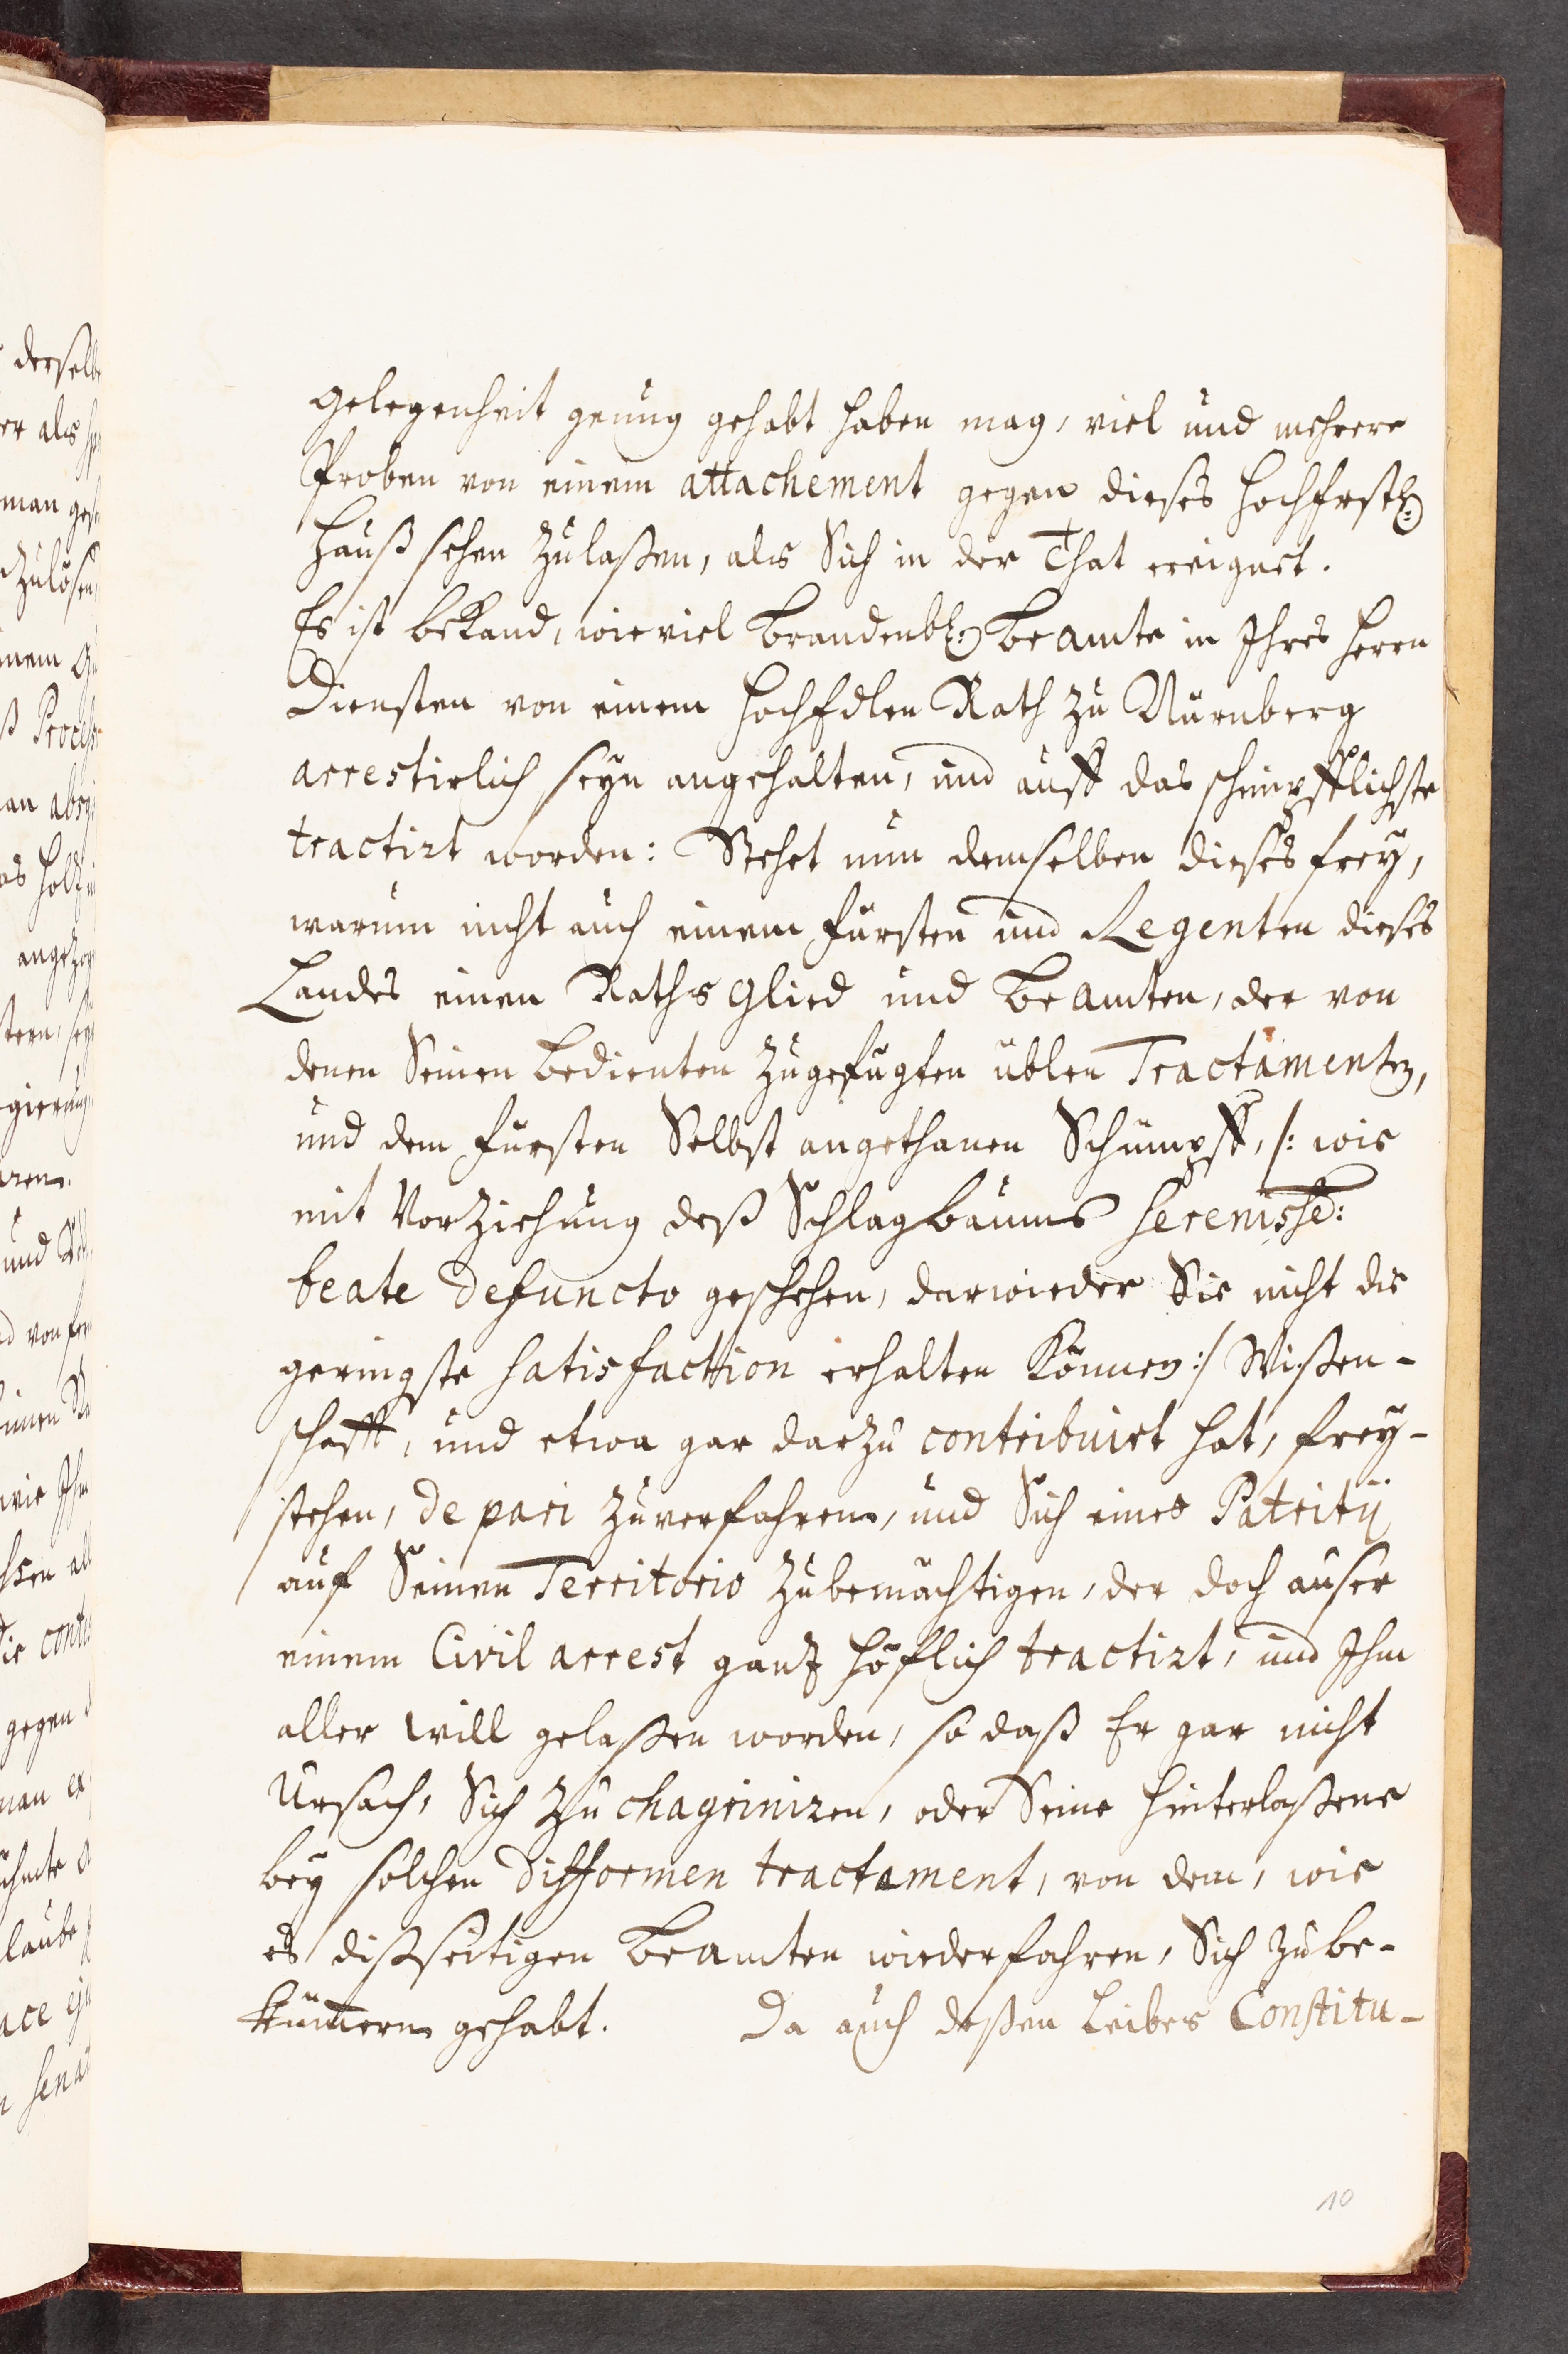 Gelegenheit genung gehabt haben mag, viel und mehrere
Proben von einem attachement gegen dieses Hochfrstl:
Hauß sehen zulaßen, als Sich in der That ereignet.
Es ist bekand, wie viel Brandenbl: Beamte in Ihres Herrn
Diensten von einem HochEdlen Rath zu Nürnberg
arrestirlich seyn angehalten, und auff das schimpfflichste
tractirt worden: Stehet nun demselben dieses frey,
warum nicht auch einem Fürsten und Regenten dieses
Landes einen Raths Glied und Beamten, der von
denen Seinen Bedienten zugefügten üblen Tractamenten,
und dem Fürsten Selbst angethanen Schimpff, /: wie
mit Vorziehung deß Schlagbaums Serenisse:
beate defuncto geschehen, darwieder Sie nicht die
geringste Satisfaction erhalten können :/ Wißen-
schafft, und etwa gar darzu contribuirt hat, frey-
stehen, de pari zuverfahren, und Sich eines Patritij
auf Seinen Territorio zubemächtigen, der doch auser
einem Civil arrest gantz höflich tractirt, und Ihm
aller will gelaßen worden, so daß Er gar nicht
Ursach, Sich zu chagrinizen, oder Seine Hinterlaßene
bey solchen difformen tractament, von dem, wie
es dißseitigen Beamten wiederfahren, Sich zube-
kümmern gehabt. Da auch deßen Leibes Constitu-
10
derselb
er als
man
zulösen
einem
ß Proceß
an
as Holtz
gierung
und
d von
wie
gegen
laube